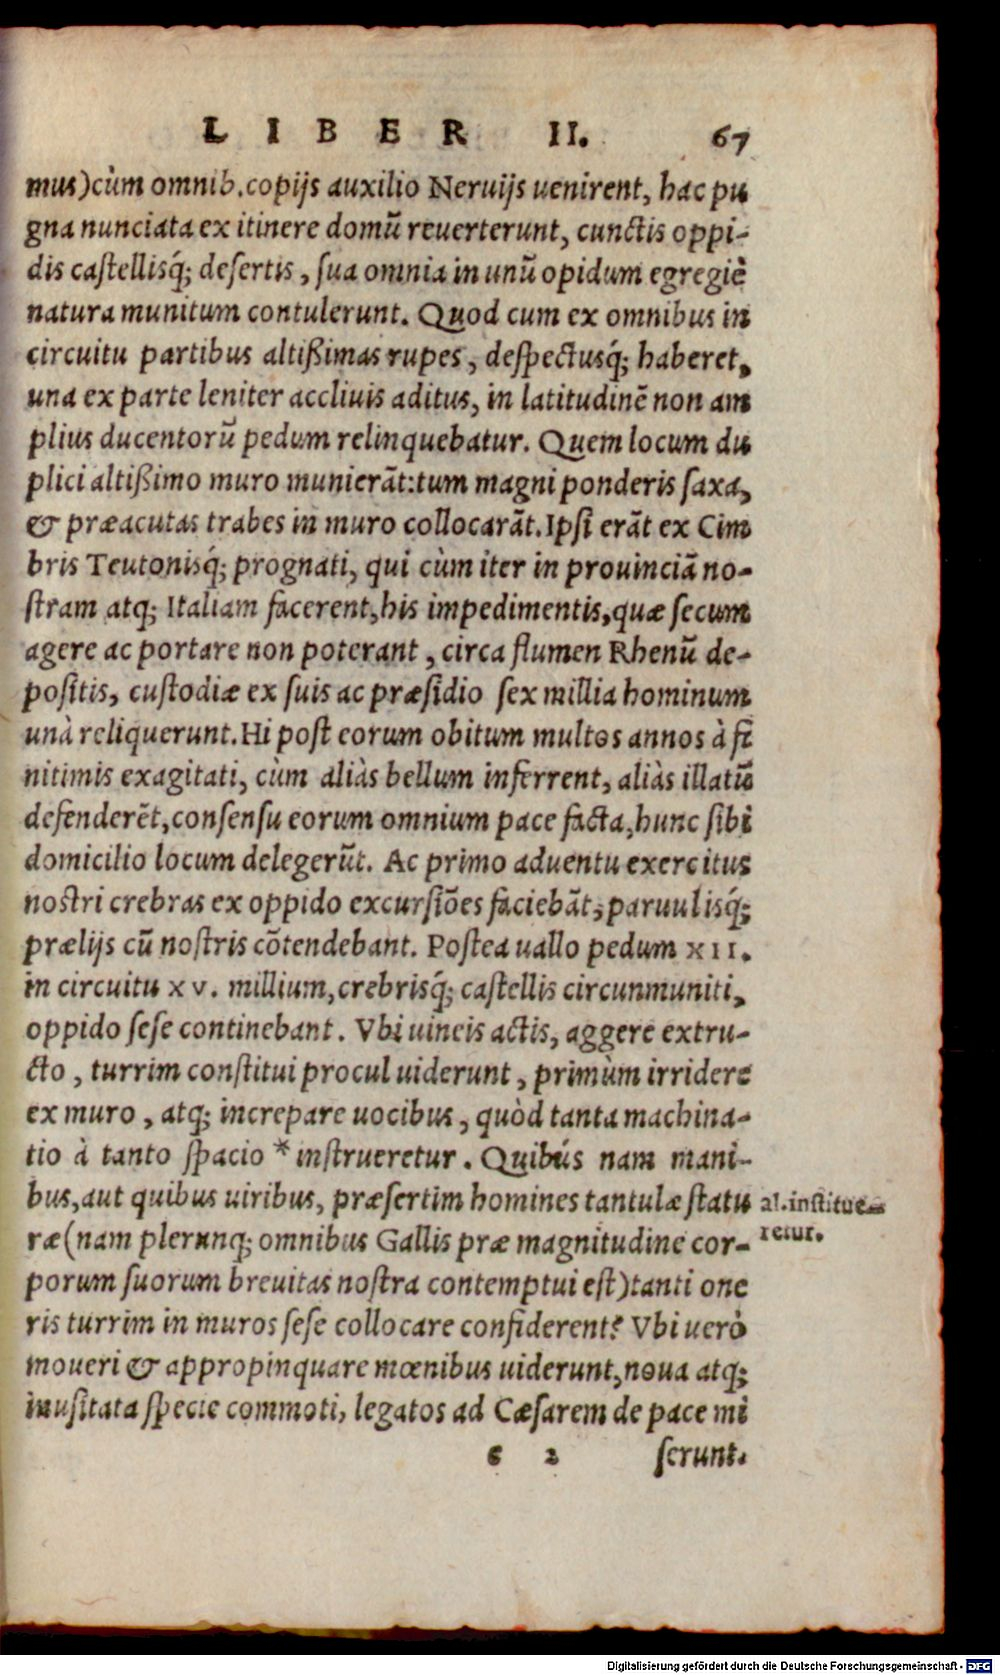 LIBER II. 67
mus)cùm omnib.copijs auxilio Neruijs uenirent, hac pu
gna nunciata ex itinere domũ reuerterunt, cunctis oppi-
dis castellisq́; desertis, sua omnia in unũ opidum egregiè
natura munitum contulerunt. Quod cum ex omnibus in
circuitu partibus altißimas rupes, despectusq́; haberet,
una ex parte leniter accliuis aditus, in latitudinẽ non am
plius ducentorũ pedum relinquebatur. Quem locum du
plici altißimo muro munierãt:tum magni ponderis saxa,
& præacutas trabes in muro collocarãt. Ipsi erãt ex Cim
bris Teutonisq́; prognati, qui cùm iter in prouinciã no-
stram atq; Italiam facerent, his impedimentis, quæ secum
agere ac portare non poterant, circa flumen Rhenũ de-
positis, custodiæ ex suis ac præsidio sex millia hominum
unà reliquerunt. Hi post eorum obitum multos annos à fi
nitimis exagitati, cùm aliàs bellum inferrent, aliàs illatũ
defenderẽt, consensu eorum omnium pace facta, hunc sibi
domicilio locum delegerũt. Ac primo aduentu exercitus
nostri crebras ex oppido excursiões faciebãt, paruulisq́;
prælijs cũ nostris cõtendebant. Postea uallo pedum XII.
in circuitu XV. millium, crebrisq́; castellis circunmuniti,
oppido sese continebant. Vbi uineis actis, aggere extru-
cto, turrim constitui procul uiderunt, primùm irridere
ex muro, atq; increpare uocibus, quòd tanta machina-
tio à tanto spacio * instrueretur. Quibús nam mani-
bus, aut quibus uiribus, præsertim homines tantulæ statu
ræ(nam plerunq; omnibus Gallis præ magnitudine cor-
porum suorum breuitas nostra contemptui est)tanti one
ris turrim in muros sese collocare confiderent? Vbi uerò
moueri & appropinquare mœnibus uiderunt, noua atq;
inusitata specie commoti, legatos ad Cæsarem de pace mi
al.institue-
retur.
6 2 serunt.
Digitalisierung gefördert durch die Deutsche Forschungsgemeinschaft - DFG